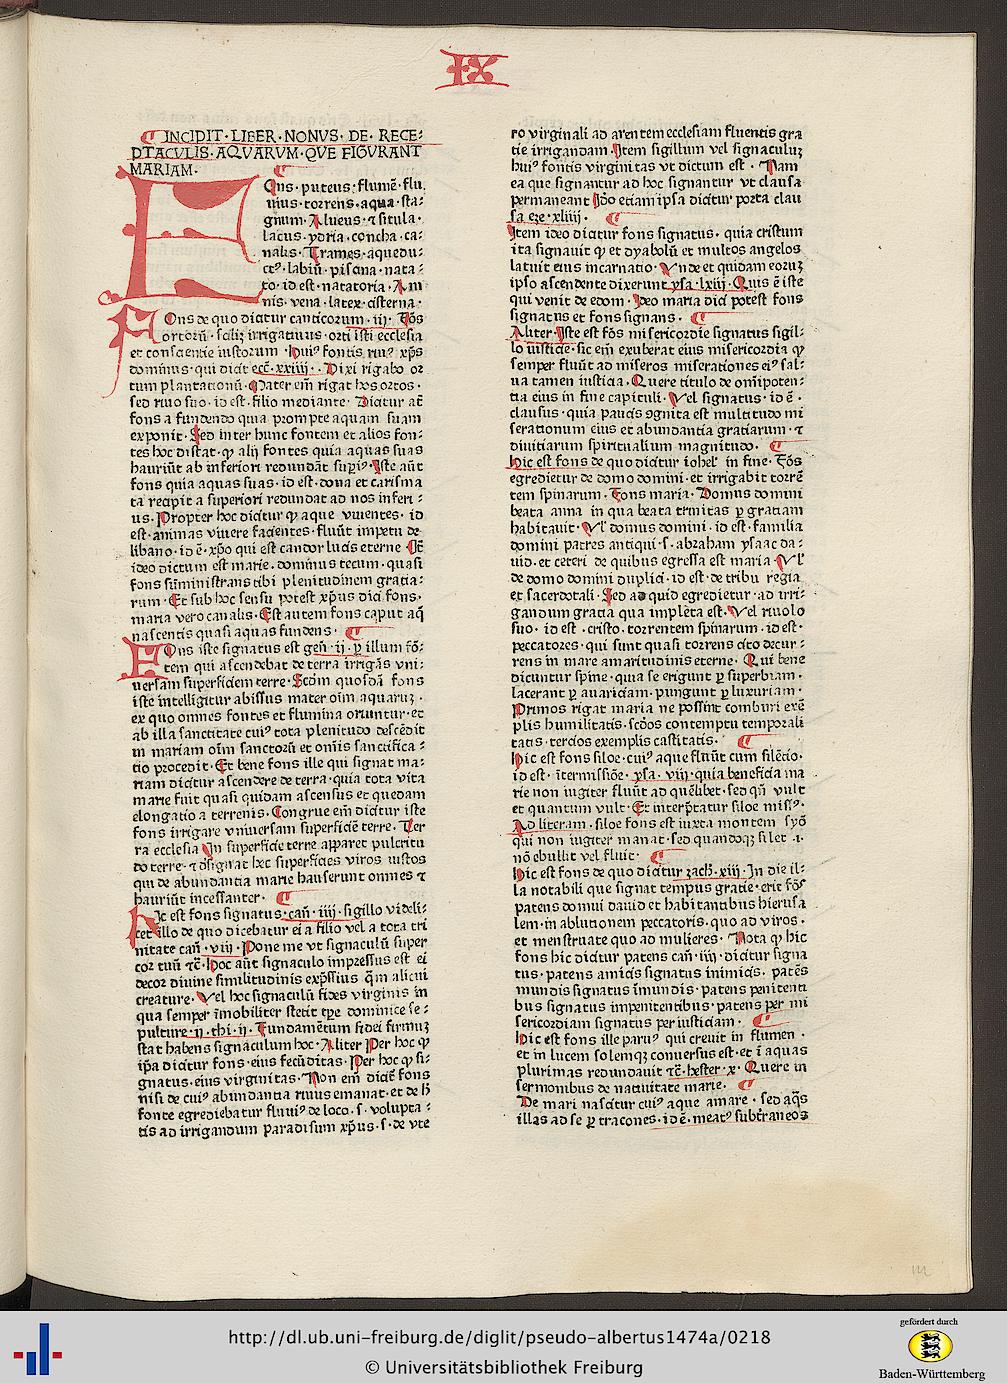 IX
INCIDIT·LIBER·NONVS·DE·RECE:
PTACVLIS·AQVARVM·QVE FIGVRANT
MARIAM·
Ons·puteus·flumē·flu.
uius·torrens·aqua·sta-
gnum·Alueus·⁊ situla·
lacus·ydria·concha·ca:
nalis·Trames·aquedu:
ctꝰ·labiū·piscina·nata:
to·id est·natatoria·Am
nis·vena·latex·cisterna·
FOns de quo dicitur canticorum·iiij·Fōs
ortorū·scilicꝫ irrigatiuus·orti isti ecclesia
et conscientie iustorum·huiꝰ fontis riuꝰ xp̄s
dominus·qui dicit ecc̄·xxiiij·Dixi rigabo or
tum plantationū·Mater em̄ rigat hos ortos·
sed riuo suo·id est·filio mediante·Dicitur aūt
fons a fundendo quia prompte aquam suam
exponit·Sed inter hunc fontem et alios fon:
tes hoc distat·ꝙ alij fontes quia aquas suas
hauriūt ab inferiori redundāt supiꝰ·Iste aūt
fons quia aquas suas·id est·dona et carisma
ta recipit a superiori redundat ad nos inferi:
us·Propter hoc dicitur ꝙ aque viuentes·id
est·animas viuere facientes·fluūt impetu de
libano·id ē·xp̄o qui est candor lucis eterne·It̄
ideo dictum est marie·dominus tecum·quasi
fons sūministrans tibi plenitudinem gratia:
rum·Et sub hoc sensu potest xp̄us dici fons·
maria vero canalis·Est autem fons caput aq̄
nascentis quasi aquas fundens·
FOns iste signatus est gen̄·ij·ꝑ illum fō:
tem qui ascendebat de terra irrigās vni:
uersam superficiem terre·Scd̄m quosdā fons
iste intelligitur abissus mater oīm aquarꝫ·
ex quo omnes fontes et flumina oriuntur·et
ab illa sanctitate cuiꝰ tota plenitudo descēdit
in mariam oīm sanctorū et om̄is sanctifica:
tio procedit·Et bene fons ille qui signat ma:
riam dicitur ascendere de terra·quia tota vita
marie fuit quasi quidam ascensus et quedam
elongatio a terrenis·Congrue em̄ dicitur iste
fons irrigare vniuersam superficiē terre·Ter
ra ecclesia·In superficie terre apparet pulcritu
do terre·⁊ d̄signat hec superficies viros iustos
qui de abundantia marie hauserunt omnes ⁊
hauriūt incessanter·
HIc est fons signatus·can̄·iiij·sigillo videli:
cet illo de quo dicebatur ei a filio vel a tota tri
nitate can̄·viij·Pone me vt signaculū super
cor tuū ⁊c̄·Hoc aūt signaculo impressus est ei
decor diuine similitudinis exp̄ssius q̄m alicui
creature·Vel hoc signaculū fides virginis in
qua semper īmobiliter stetit tpe dominice se:
pulture·ij·thi·ij·Fundamētum fidei firmuꝫ
stat habens signaculum hoc·Aliter Per hoc ꝙ
ip̄a dicitur fons·eius fecūditas·Per hoc ꝙ si:
gnatus·eius virginitas·Non em̄ dicit fons
nisi de cuiꝰ abundantia riuus emanat·et de h̄
fonte egrediebatur fluuiꝰ de loco·s·volupta:
tis ad irrigandum paradisum xp̄us·s·de vte
ro virginali ad arentem ecclesiam fluentis gra
tie irrigandam·Item sigillum vel signaculuꝫ
huiꝰ fontis virginitas vt dictum est·Nam
ea que signantur ad hoc signantur vt clausa
permaneant·Id̄o etiam ipsa dicitur porta clau
sa eze·xliiij·
Item ideo dicitur fons signatus·quia cristum
ita signauit ꝙ et dyabolū et multos angelos
latuit eius incarnatio·Vnde et quidam eoruꝫ
ipso ascendente dixerunt ysa·lxiij·Quis ē iste
qui venit de edom·Ideo maria dici potest fons
signatus et fons signans·
Aliter·Iste est fōs misericordie signatus sigil-
lo iusticie·sic em̄ exuberat eius misericordia ꝙ
semper fluūt ad miseros miserationes eiꝰ sal-
ua tamen iusticia·Quere titulo de om̄ipoten:
tia eius in fine capituli·Vel signatus·id ē·
clausus·quia paucis ꝯgnita est multitudo mi
serationum eius et abundantia gratiarum·⁊
diuitiarum spiritualium magnitudo·
Hic est fons de quo dicitur iohel in fine·Fōs
egredietur de domo domini·et irrigabit torrē
tem spinarum·Fons maria·Domus domini
beata anna in qua beata trinitas ꝑ gratiam
habitauit·Vl̄ domus domini·id est·familia
domini patres antiqui·s·abraham ysaac da:
uid·et ceteri de quibus egressa est maria·Vl̄
de domo domini duplici·id est·de tribu regia
et sacerdotali·Sed ad quid egredietur·ad irri:
gandum gratia qua impleta est·Vel riuolo
suo·id est·cristo·torrentem spinarum·id est·
peccatores·qui sunt quasi torrens cito decur:
rens in mare amaritudinis eterne·Qui bene
dicuntur spine·quia se erigunt ꝑ superbiam·
lacerant ꝑ auariciam·pungunt ꝑ luxuriam·
Primos rigat maria ne possint comburi exē
plis humilitatis·scd̄os contemptu temporali
tatis·tercios exemplis castitatis·
Hic est fons siloe·cuiꝰ aque fluūt cum silēcio·
id est·ītermissiōe·ysa·viij·quia beneficia ma
rie non iugiter fluūt ad quēlibet·sed qn̄ vult
et quantum vult·Et interp̄tatur siloe missꝰ·
Ad literam·siloe fons est iuxta montem syō
qui non iugiter manat·sed quandoqꝫ silet·i·
nō ebullit vel fluit·
Hic est fons de quo dicitur zach̄·xiij·In die il:
la notabili que signat tempus gratie·erit fōs
patens domui dauid et habitantibus hierusa
lem·in ablutionem peccatoris·quo ad viros·
et menstruate quo ad mulieres·Nota ꝙ hic
fons hic dicitur patens can̄·iiij·dicitur signa
tus·patens amicis signatus inimicis·patēs
mundis signatus īmundis·patens penitenti
bus signatus impenitentibus·patens per mi
sericordiam signatus per iusticiam·
Hic est fons ille paruꝰ qui creuit in flumen·
et in lucem solemqꝫ conuersus est·et ī aquas
plurimas redundauit ⁊c̄·hester·x·Quere in
sermonibus de natiuitate marie·
De mari nascitur cuiꝰ aque amare·sed aq̄s
illas ad se ꝑ tracones·id ē·meatꝰ subt̄raneos
m
http://dl.ub.uni-freiburg.de/diglit/pseudo-albertus1474a/0218
© Universitätsbibliothek Freiburg
gefördert durch
Baden-Württemberg